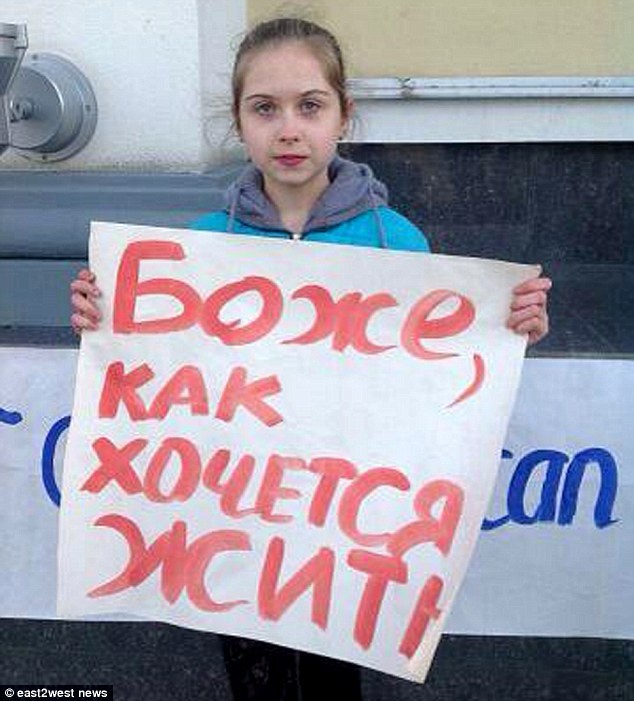 Боже,
как
хочется
жить
can
© east2west news